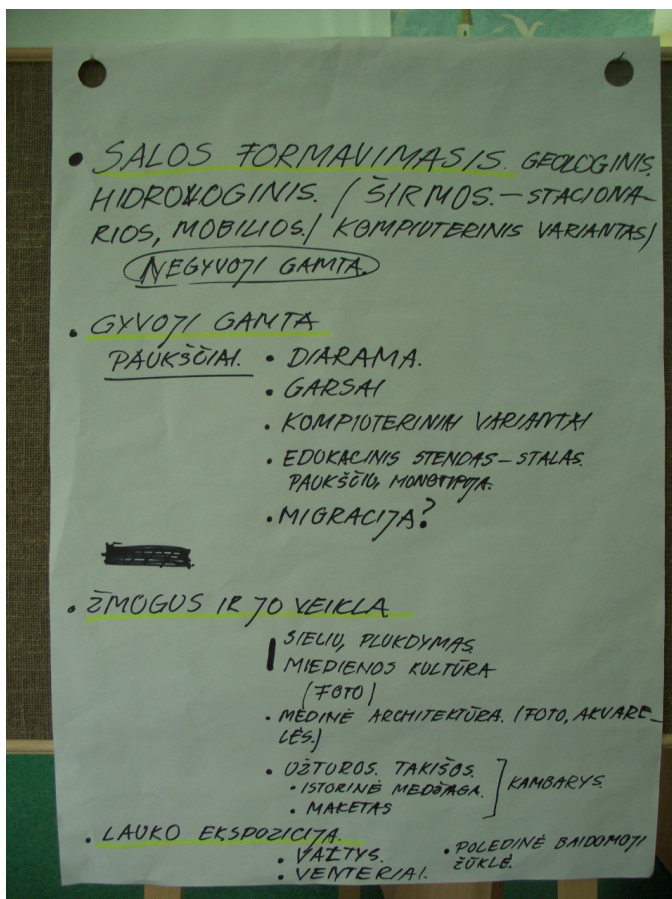 • SALOS FORMAVIMASIS. GEOLOGINIS,
HIDROLOGINIS. / ŠIRMOS. – STACIONA-
RIOS, MOBILIOS. / KOMPIUTERINIS VARIANTAS/
NEGYVOJI GAMTA.
• GYVOJI GAMTA
PAUKŠČIAI. • DIARAMA.
• GARSAI
• KOMPIUTERINIAI VARIANTAI
• EDUKACINIS STENDAS – STALAS.
PAUKŠČIŲ, MONOTIPIJA.
• MIGRACIJA?
• ŽMOGUS IR JO VEIKLA
SIELIŲ, PLUKDYMAS
MIEDIENOS KULTŪRA
(FOTO)
• MEDINĖ ARCHITEKTŪRA. (FOTO, AKVARE-
LĖS.)
• UŽTUROS. TAKIŠOS.
• ISTORINĖ MEDŽIAGA. KAMBARYS.
• MAKETAS
• LAUKO EKSPOZICIJA.
• VALTYS. • POLEDINĖ BAIDOMOJI
• VENTERIAI. ŽŪKLĖ.